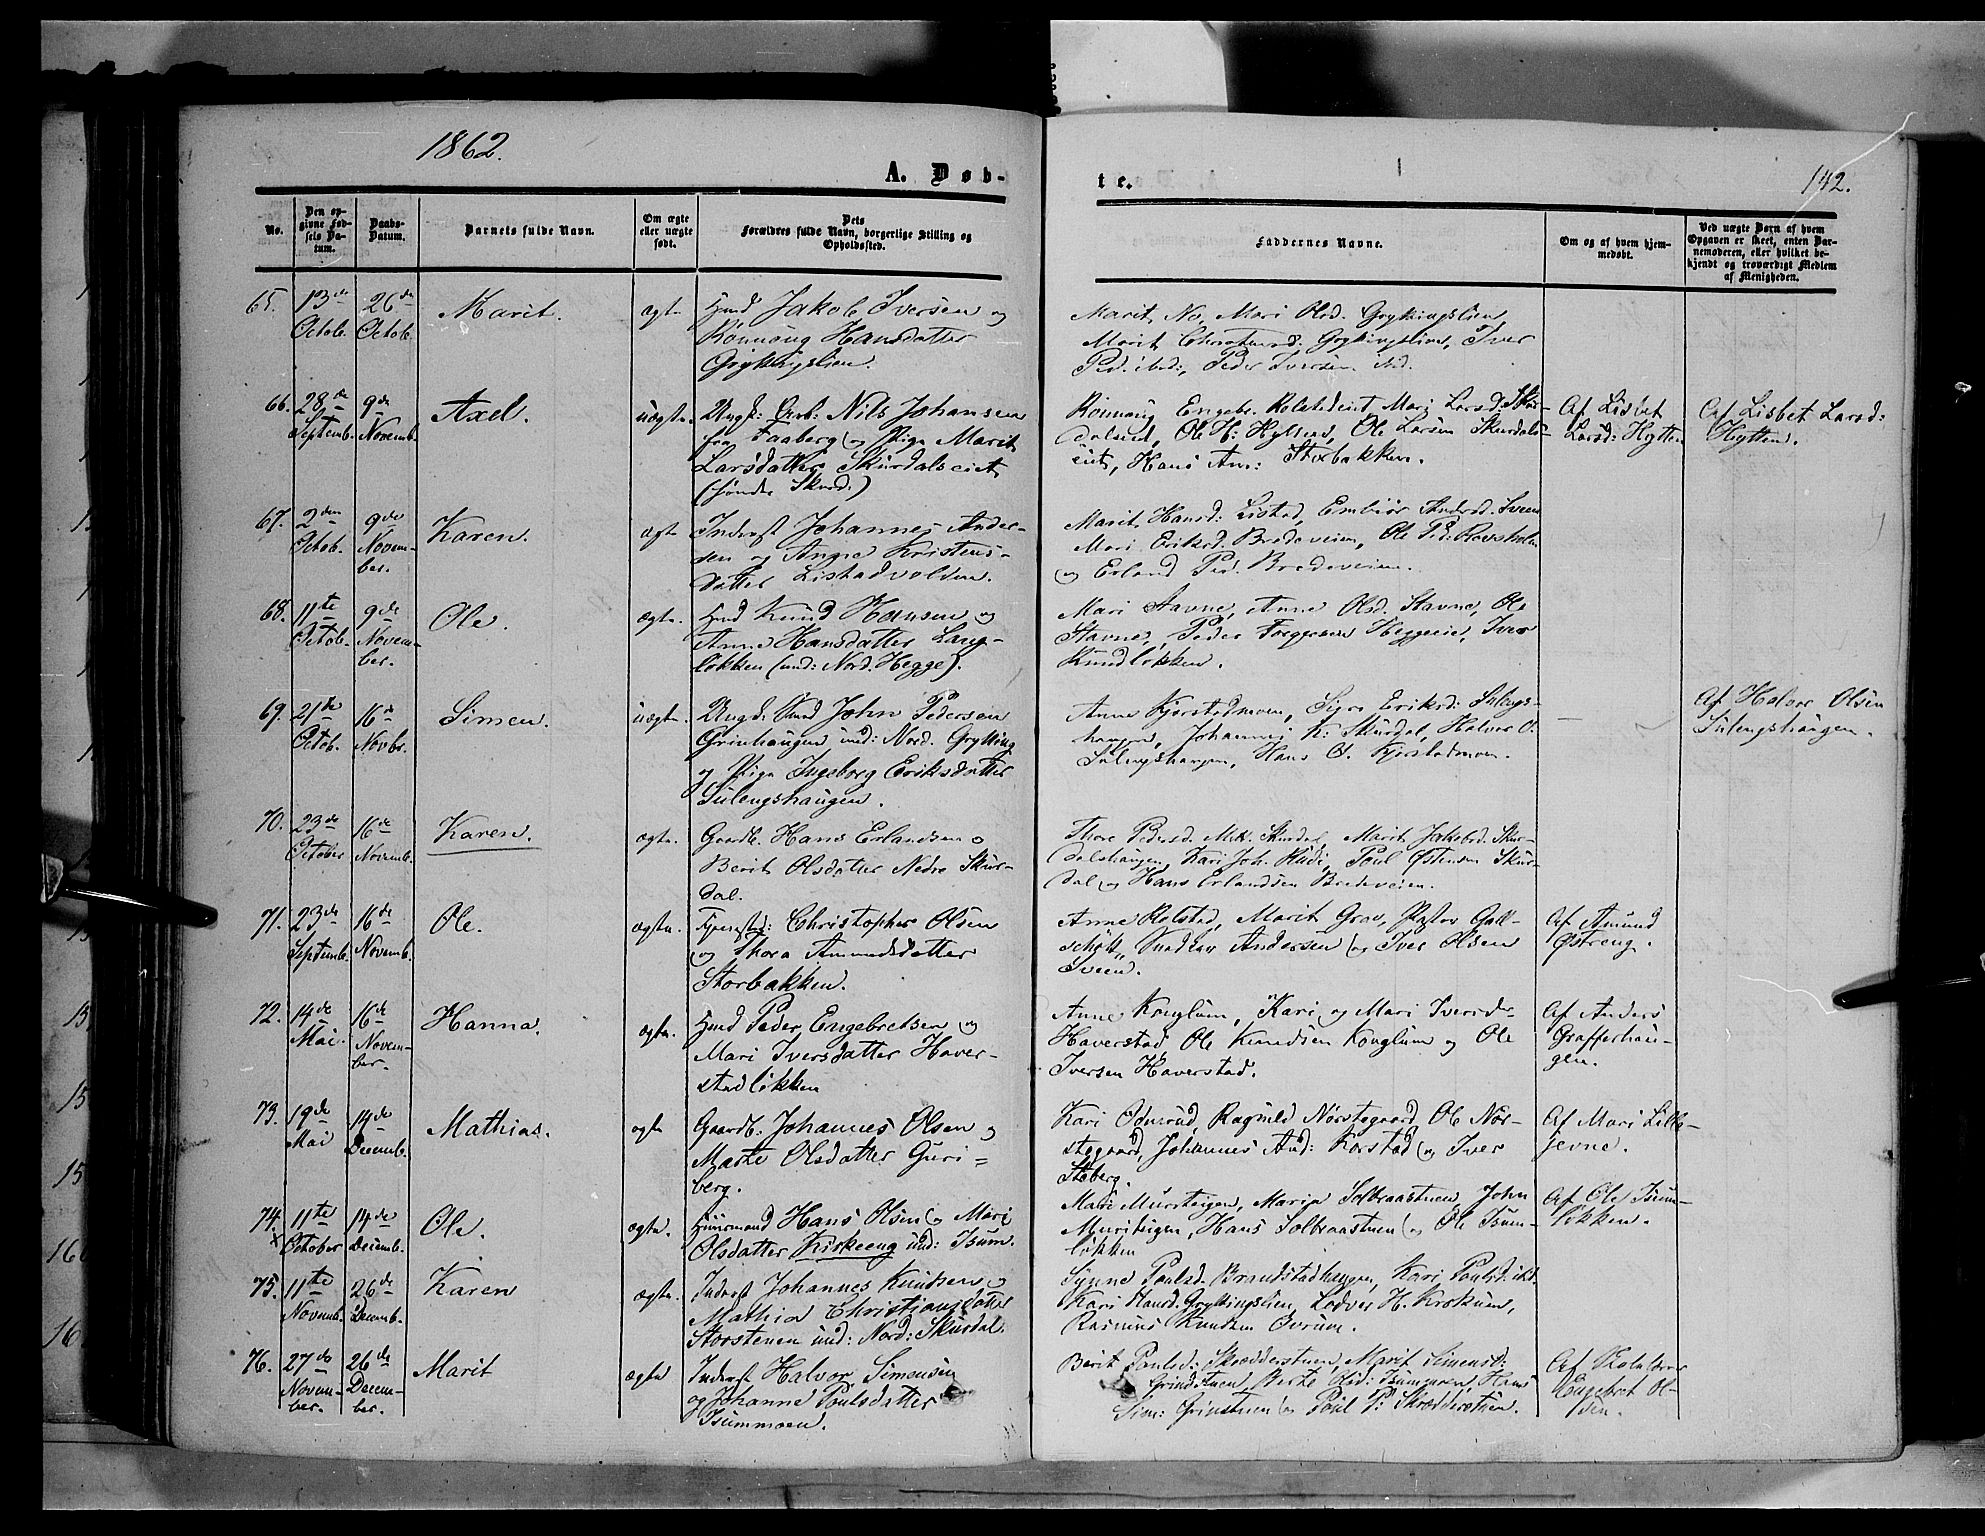 1862.
A. Døb-
te.
142.
No.
Den op-
givne Fød-
sels Da-
tum.
Daabs-
Datum.
Barnets fulde Navn.
Om ægte
eller uægte
født.
Dets
Forældres fulde Navn, borgerlige Stilling og
Opholdssted.
Faddernes Navne.
Om og af hvem hjem-
medøbt.
Ved uægte Børn af hvem
Opgaven er skeet, enten Bar-
nemoderen, eller hvilket be-
kjendt og troværdigt Medlem
af Menigheden.
65. 13de Octob. 26de Octob. Marit. ægte
Jakob Iversen og
Rønnaug Hansdatter
Gryttingslien.
Marit, No, Mari Olsd. Gryttingslien,
Marit Gryttingslien, Iver
Ped. ibid:, Peder Iversen ibid.
66. 28de Septemb. 9de Novemb. Axel. uægte.
Ungk: Nils Johansen
fra Faaberg og Pige Marit
Larsdatter Skurdalseiet
(søndre Skurd.)
Rønnaug Engebr. Kolstadeiet, Mari Larsd: Skur-
dalseiet, Ole H: Hytten, Ole Larsen Skurdals-
eiet, Hans Storbakken.
Af Lisbet
Larsd: Hytten
Af Lisbet Larsd:
Hytten.
67. 2den Octob. 9de Novem-
ber. Karen. ægte
Inderst Johannes Ander-
sen og Anne Kristens-
datter Listadvolden.
Marit Hansd: Listad, Embiør Andersd. Sveen
Mari Eriksd: Bredeveien, Ole Ped:
og Erland Ped. Bredeveien.
68. 11te Octob. 9de Novem-
ber. Ole. ægte.
Knud Hansen og
Anne Hansdatter Lang-
løkken (und: Nord. Hegge).
Mari Stavne, Anne Olsd. Stavne, Ole
Stavne, Peder Torgersen Heggeeie, Iver
Knudløkken.
69. 21de Octob. 16de Novbr. Simen. uægte.
Ungk: John Pedersen
Grinhaugen und: Nord. Grytting
og Pige Ingeborg Eriksdatter
Sulengshaugen.
Anne Kjorstadmoen, Sigri Eriksd: Sulengs-
haugen, Johannes K: Skurdal, Halvor O.
Sulengshaugen, Hans O. Kjorstadmoen.
Af Halvor Olsen
Sulengshaugen.
70. 23de October 16de Novemb. Karen. ægte.
Gaardb. Hans Erlandsen og
Berit Olsdatter Nedre Skur-
dal.
Thore Pedersd. Skurdal, Marit Jakobsd. Skur-
dalshaugen, Kari Joh. Rudi, Poul Østensen Skur-
dal og Hans Erlandsen Bredeveien.
71. 23de Septemb. 16de Novemb. Ole. ægte.
Christopher Olsen
og Thora Amundsdatter
Storbakken.
Anne Kolstad, Marit Grov, Pastor Gall-
schøtt, Andersen og Iver Olsen
Sveen.
Af Amund
Østreng.
72. 14de Mai. 16de Novem-
ber. Hanna. ægte.
Peder Engebretsen og
Mari Iversdatter Haver-
stadløkken
Anne Konglum, Kari og Mari Iversd.
Haverstad, Ole Knudsen Konglum og Ole
Iversen Haverstad.
Af Anders
Grafferhau-
gen.
73. 19de Mai 14de Decemb. Mathias. ægte
Gaardb. Johannes Olsen og
Marte Olsdatter Guri-
berg.
Kari Odnrud, Ragnild Nørstegaard, Ole Nør-
stegaard, Johannes And: Korstad og Iver
Stoberg.
Af Mari Lille-
jevne.
74. 11te October 14de Decemb. Ole. ægte.
Huusmand Hans Olsen og Mari
Olsdatter Kirkeeng und: Isum.
Mari Muursteigen, Maria Solbraastuen, John
Muursteigen, Hans Solbraastuen og Ole Isum-
løkken
Af Ole Isum-
løkken.
75. 11te Novemb. 26de Decemb. Karen ægte.
Inderst Johannes Knudsen og
Mathia Christiansdatter
Storstenen und: Nord: Skurdal.
Synne Poulsd. Brandstadhaugen, Kari Poulsd. ibd.
Kari Hansd. Gryttingslien, Lodver H. Krokum,
Rasmus Knudsen Ovrum.
76. 27de Novem-
ber. 26de Decem-
ber. Marit ægte
Inderst Halvor Simensen
og Johanne Poulsdatter
Isummoen.
Berit Poulsd: Skrædderstuen, Marit Simensd:
Grindstuen, Marte Olsd: Isummoen, Hans
Sim: Grinstuen og Poul P: Skrædderstuen.
Af
Engebret Ol-
sen.